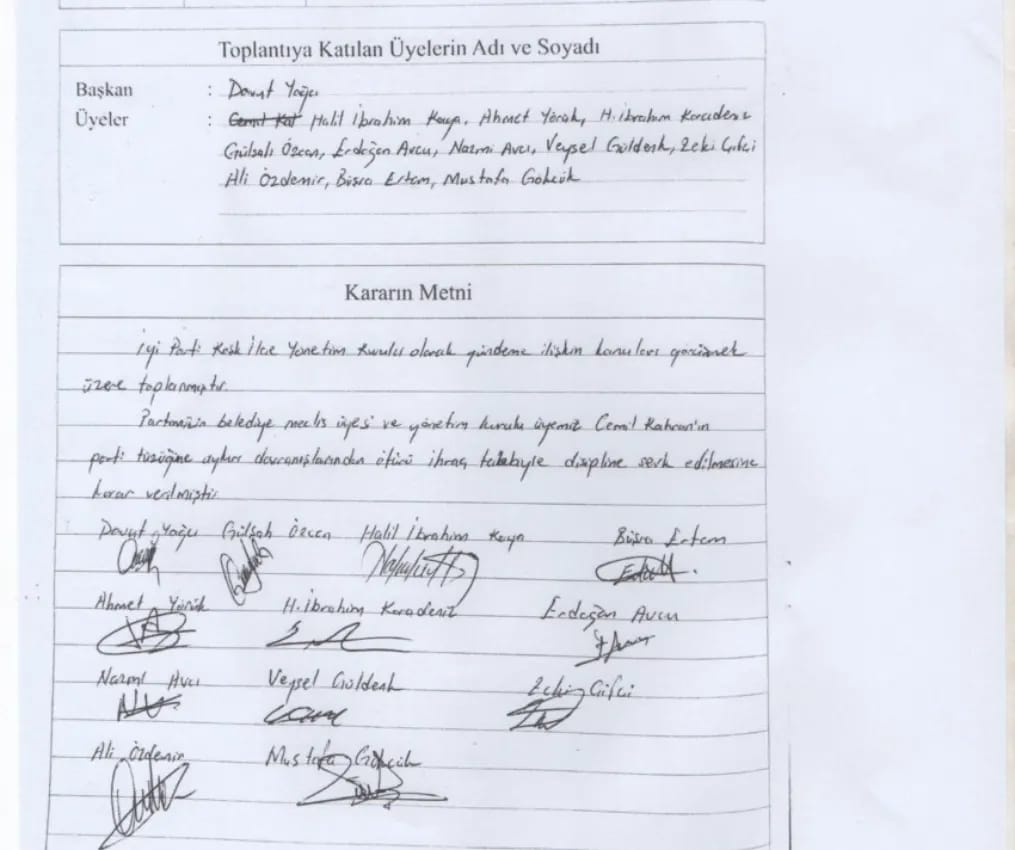 Toplantıya Katılan Üyelerin Adı ve Soyadı
Başkan : Davut Yağcı
Üyeler : Cemil Kah Halil İbrahim Kaya, Ahmet Yörük, H. İbrahim Karadeniz
Gülşah Özcan, Erdoğan Avcu, Nazmi Avcı, Veysel Güldenk, Zeki Çifci
Ali Özdemir, Büşra Ertem, Mustafa Gökçük
Kararın Metni
İyi Parti Keskin İlçe Yönetim Kurulu olarak gündeme ilişkin konuları görüşmek
üzere toplanmıştır.
Partimizin belediye meclis üyesi ve yönetim kurulu üyemiz Cemil Kahran'ın
parti tüzüğüne aykırı davranışlarından ötürü ihraç talebiyle disipline sevk edilmesine
karar verilmiştir.
Davut Yağcı Gülşah Özcan Halil İbrahim Kaya Büşra Ertem
Ahmet Yörük H. İbrahim Karadeniz Erdoğan Avcu
Nazmi Avcı Veysel Güldenk Zeki Çifci
Ali Özdemir Mustafa Gökçük